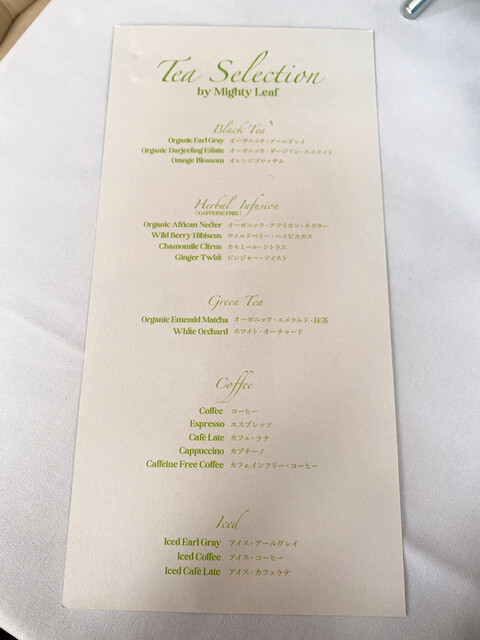 Tea Selection
by Mighty Leaf
Black Tea
Organic Earl Gray オーガニック・アールグレイ
Organic Darjeeling Estate オーガニック・ダージリン・エステイト
Orange Blossom オレンジブロッサム
Herbal Infusion
[CAFFEINE FREE]
Organic African Necter オーガニック・アフリカン・ネクター
Wild Berry Hibiscus ワイルドベリー・ハイビスカス
Chamomile Citrus カモミール・シトラス
Ginger Twist ジンジャー・ツイスト
Green Tea
Organic Emerald Matcha オーガニック・エメラルド・抹茶
White Orchard ホワイト・オーチャード
Coffee
Coffee コーヒー
Espresso エスプレッソ
Café Late カフェ・ラテ
Cappuccino カプチーノ
Caffeine Free Coffee カフェインフリー・コーヒー
Iced
Iced Earl Gray アイス・アールグレイ
Iced Coffee アイス・コーヒー
Iced Café Late アイス・カフェラテ